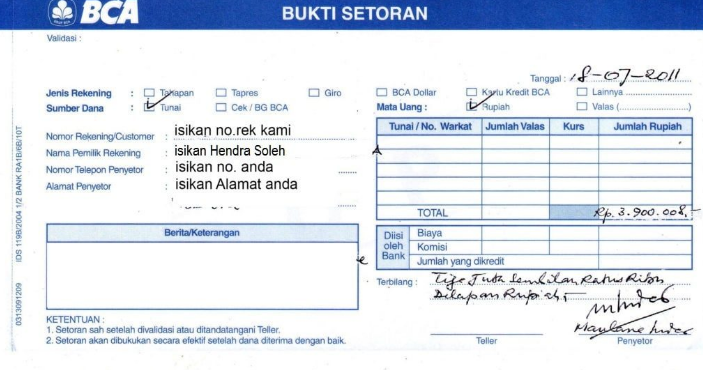 BCA
BUKTI SETORAN
Validasi :
Tanggal : 18-07-2011
Jenis Rekening : Tahapan Tapres Giro BCA Dollar Kartu Kredit BCA Lainnya
Sumber Dana : Tunai Cek / BG BCA Mata Uang : Rupiah Valas (...)
Nomor Rekening/Customer : isikan no.rek kami
Nama Pemilik Rekening : isikan Hendra Soleh
Nomor Telepon Penyetor : isikan no. anda
Alamat Penyetor : isikan Alamat anda
Tunai / No. Warkat Jumlah Valas Kurs Jumlah Rupiah
TOTAL Rp. 3.900.008,-
Berita/Keterangan
Diisi oleh Bank
Biaya
Komisi
Jumlah yang dikredit
Terbilang : Tiga Juta Sembilan Ratus Ribu
Delapan Rupiah
KETENTUAN :
1. Setoran sah setelah divalidasi atau ditandatangani Teller.
2. Setoran akan dibukukan secara efektif setelah dana diterima dengan baik.
Teller Penyetor
0313091209 IDS 1198/2004 1/2 BANK RA1B/6B/10T